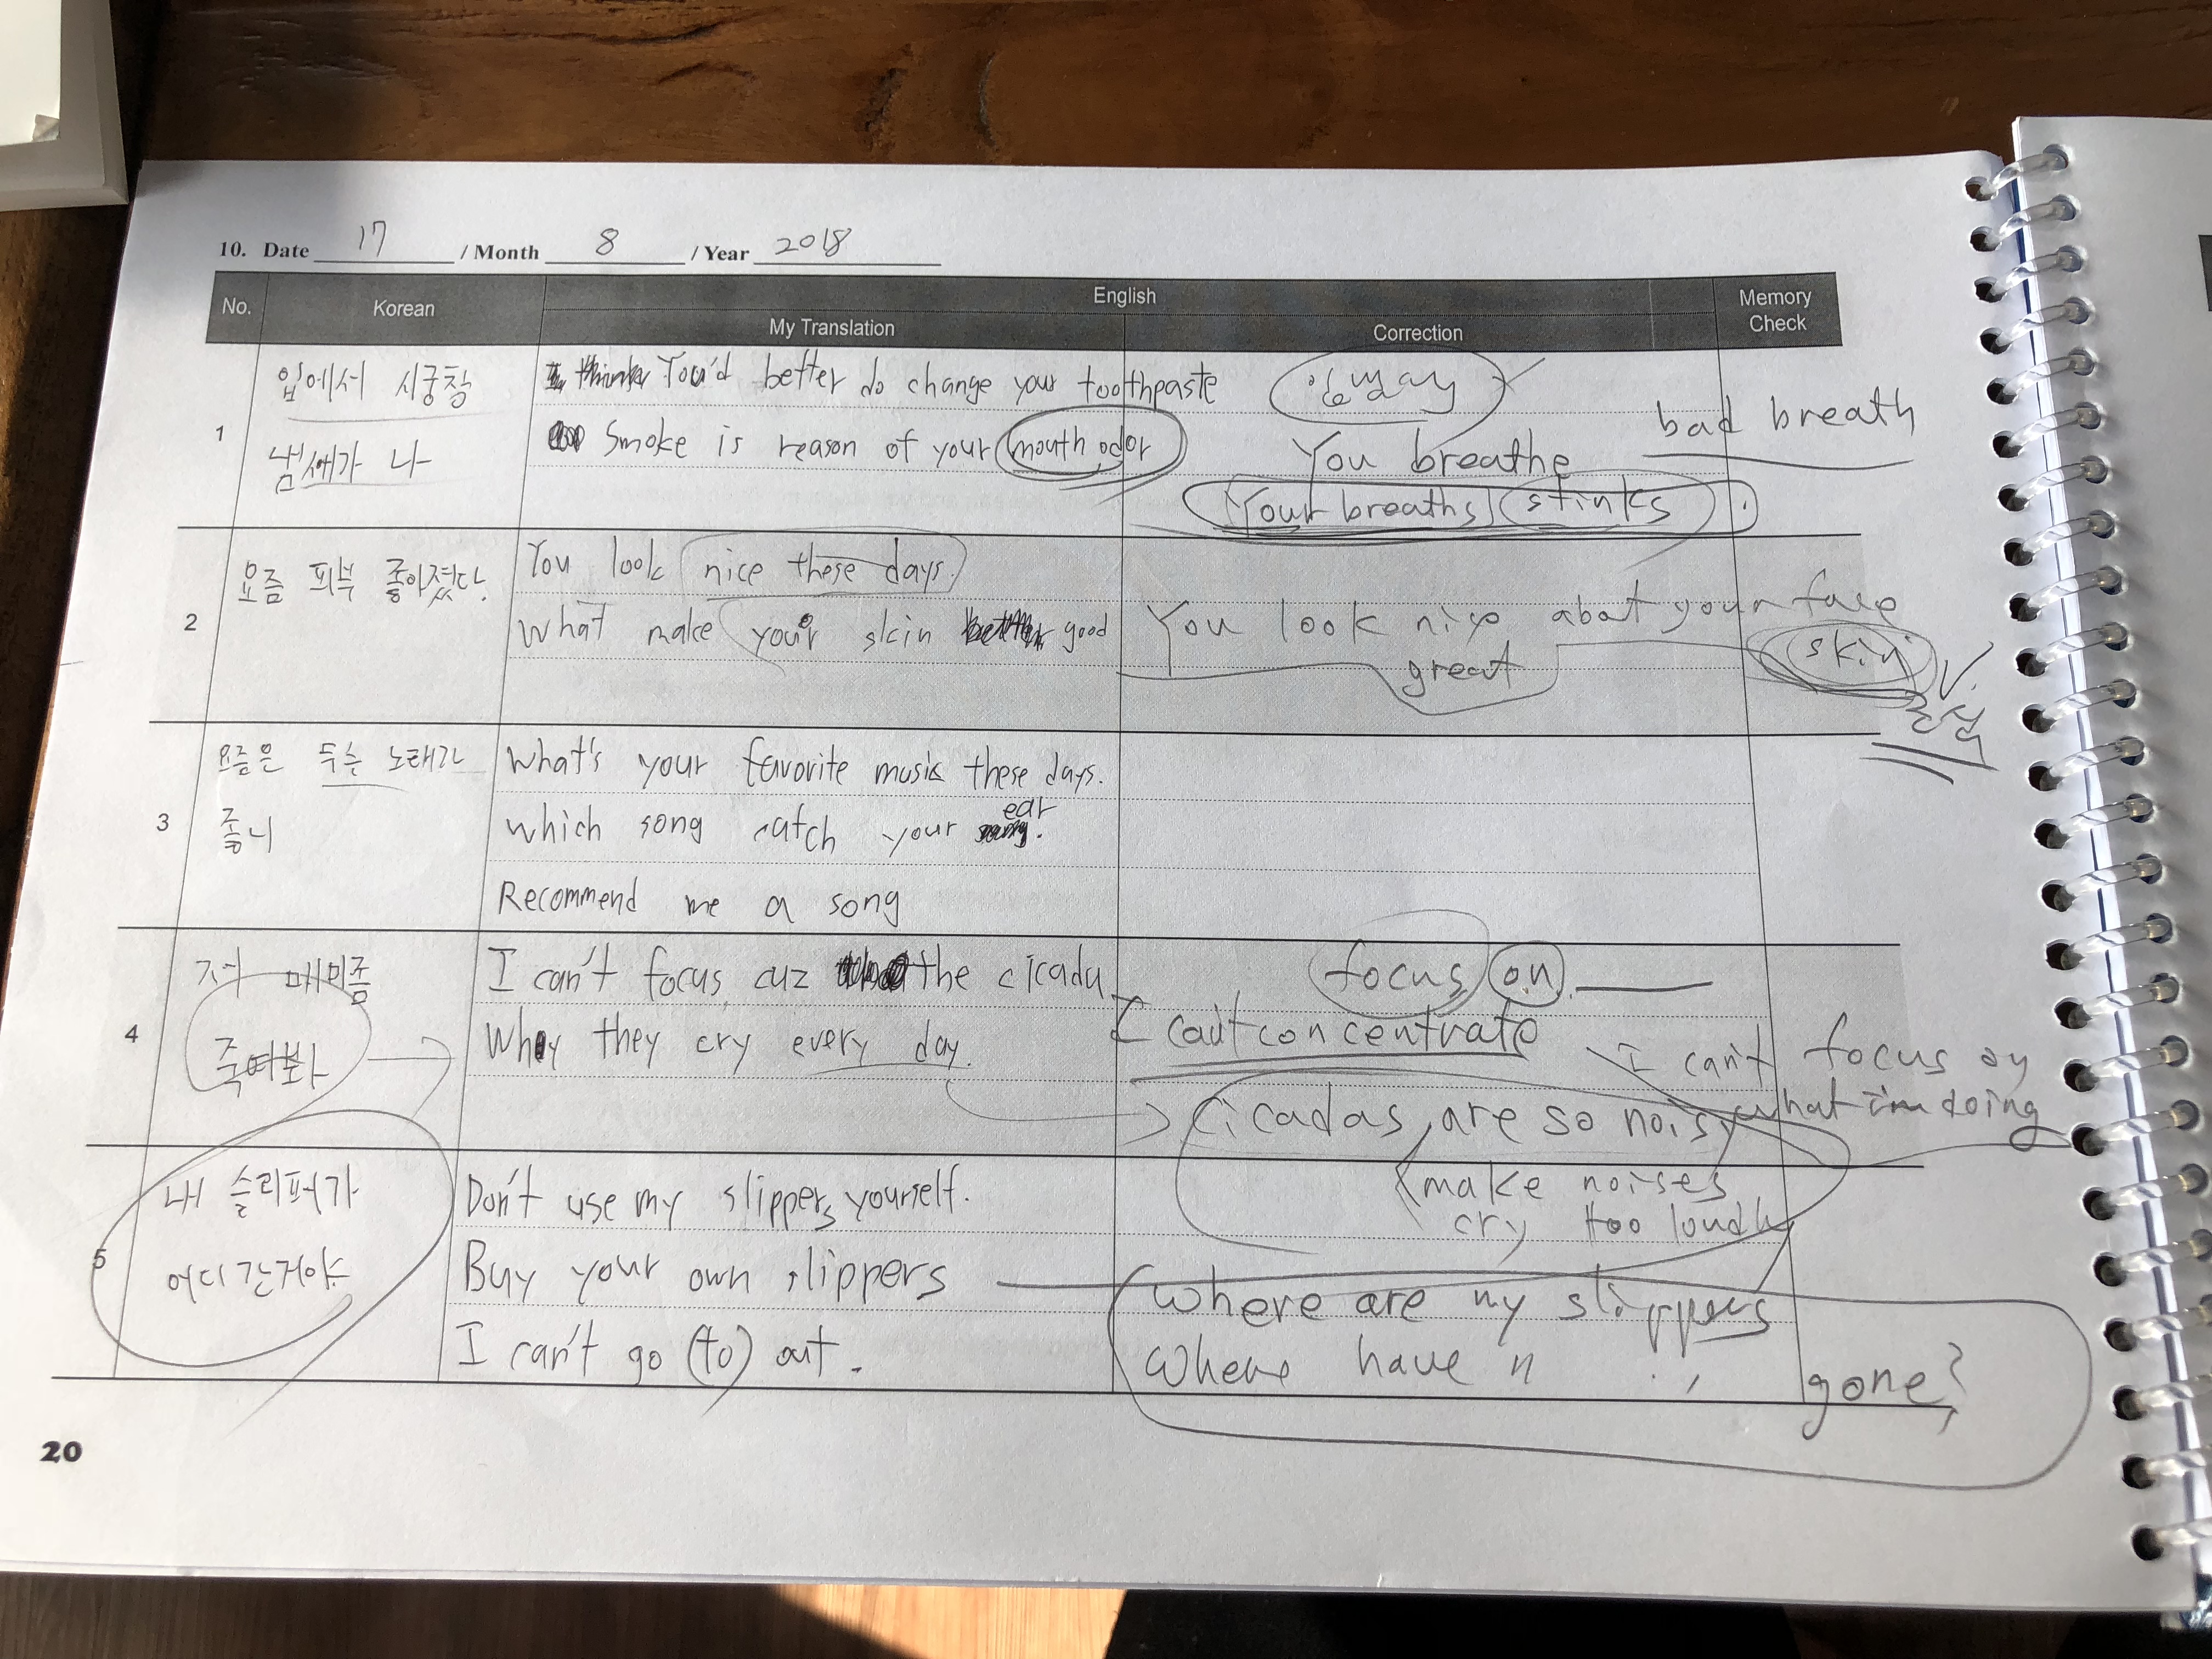 10. Date 17 / Month 8 / Year 2018
No. Korean English Memory Check
My Translation Correction
1
입에서 시궁창
냄새가 나
You'd better do change your toothpaste
Smoke is reason of your mouth odor
You breathe
bad breath
Your breaths stinks.
2
요즘 피부 좋아졌다.
You look nice these days.
What make your skin good
You look nice about your face
great
skin
3
요즘은 무슨 노래가
좋니
What's your favorite music these days.
Which song catch your ear.
Recommend me a song
4
저 매미좀
죽여봐
I can't focus cuz the cicada
Why they cry every day.
focus on
I can't concentrate
I can't focus on
what i'm doing
cicadas are so noisy
make noises
cry too loudly
5
내 슬리퍼가
어디간거야
Don't use my slippers yourself.
Buy your own slippers
I can't go (to) out.
Where are my slippers
Where have 〃 gone?
20